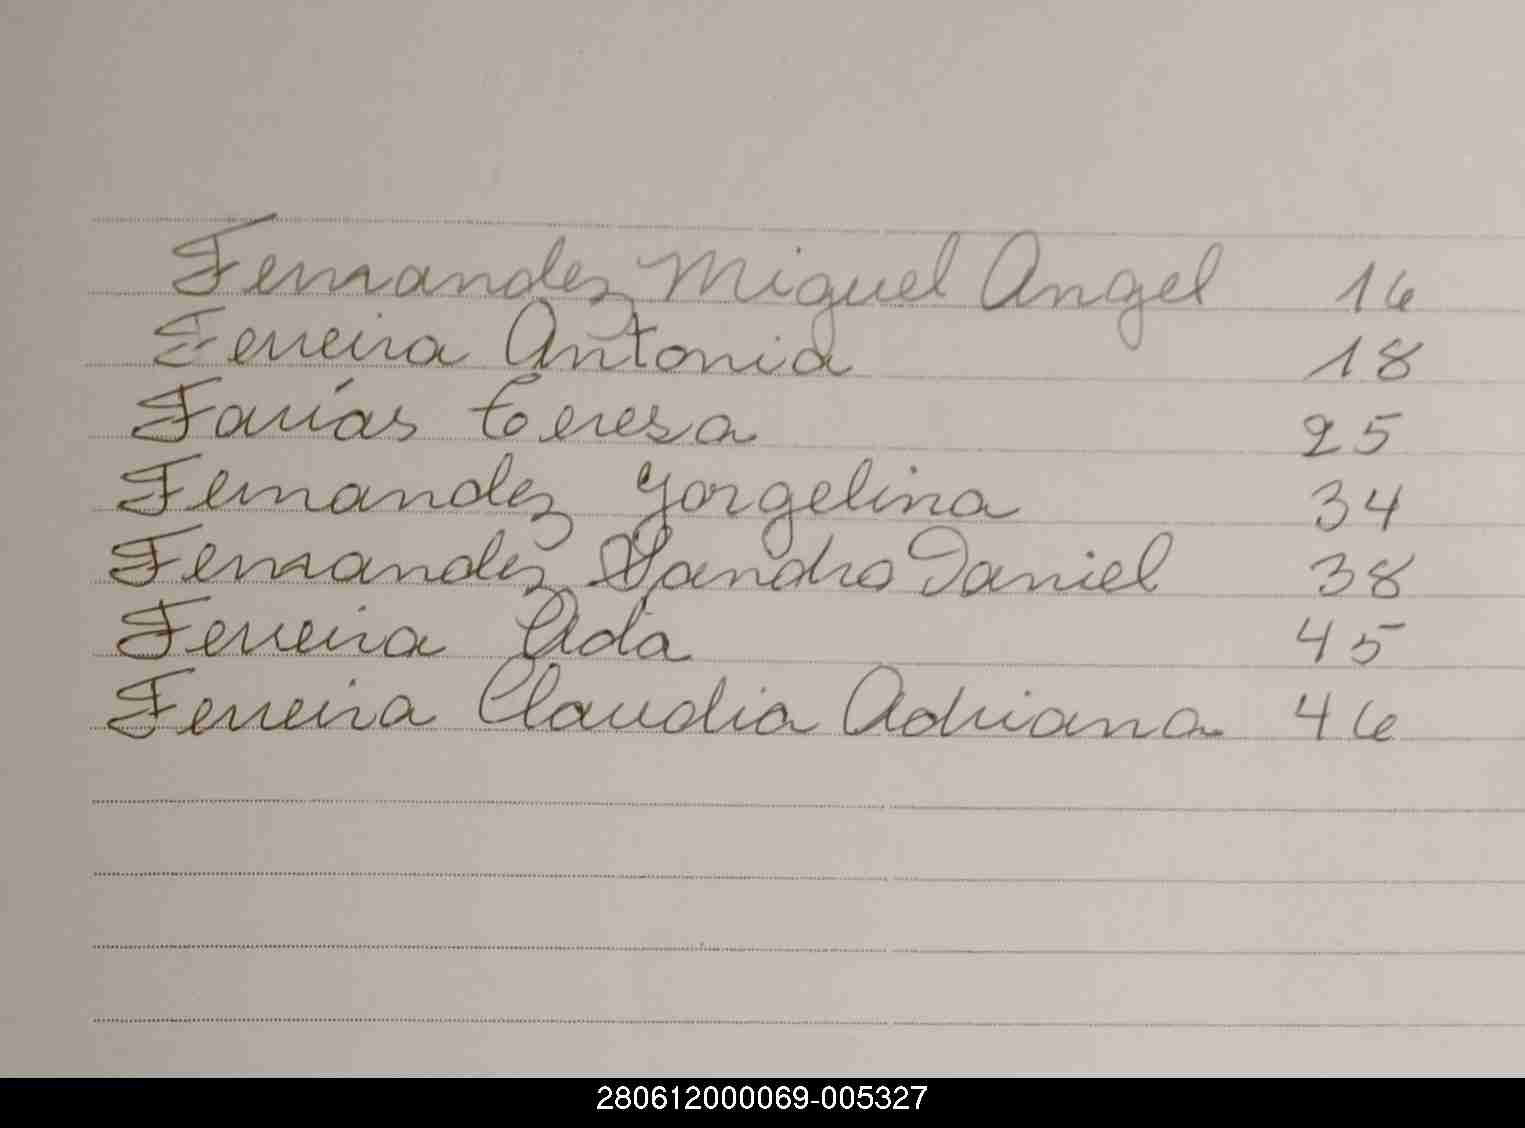 Fernandez Miguel Angel 16
Ferreira Antonia 18
Farías Teresa 25
Fernandez Yorgelina 34
Fernandez Sandro Daniel 38
Ferreira Ada 45
Ferreira Claudia Adriana 46
280612000069-005327